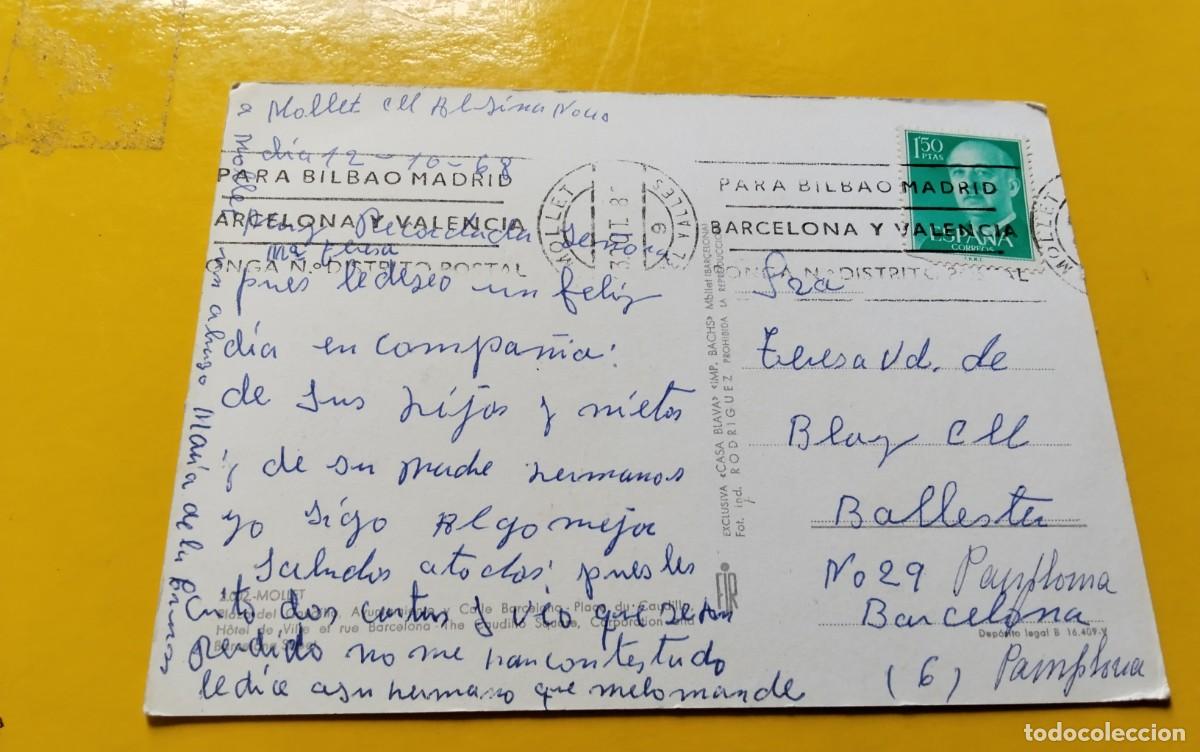 a Mollet Cll
día 12-10-68
PARA BILBAO MADRID
ARCELONA Y VALENCIA
ONGA N.º DISTRITO POSTAL
Señora
Mª teresa
pues le deseo un feliz
día en compañia:
de sus hijos y nietos
y de su madre hermanos
yo sigo Algo mejor
Saludos atodos pues les
dos cartas y veo que se an
perdido no me han contestado
le dice a su hermano que melo mande
un abrazo María de la
3.602-MOLLET
Plaza del Caudillo, Ayuntamiento y Calle Barcelona - Place du Caudillo,
Hôtel de Ville et rue Barcelona - The Caudillo Square, Corporation and
Barcelona Street
EXCLUSIVA «CASA BLAVA» «IMP. BACHS» Mollet (BARCELONA)
Fot. ind. RODRIGUEZ PROHIBIDA LA REPRODUCCION
FIR
MOLLET
VALLES
PARA BILBAO MADRID
BARCELONA Y VALENCIA
ONGA N.º DISTRITO POSTAL
1'50
PTAS
ESPAÑA
CORREOS
MOLLET
Sra
Teresa Vd. de
Blay Cll
Ballester
No 29 Pamplona
Barcelona
Depósito legal B 16.409-V
(6) Pamplona
todocoleccion